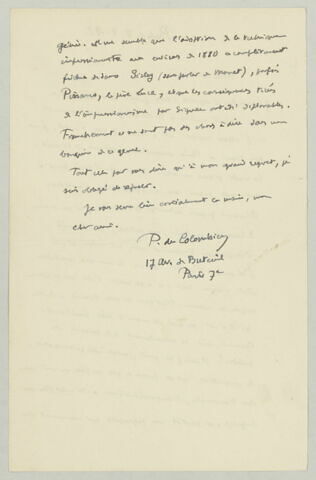 génie. Il me semble que l'adoption de la technique
impressionniste aux environs de 1880 a complètement
fichu dedans Sisley (sans parler de Monet), parfois
Pissarro, le père Luce, et que les conséquences tirées
de l'impressionnisme par Signac ont été déplorables.
Franchement ce ne sont pas des choses à dire dans un
bouquin de ce genre.
Tout cela pour vous dire qu'à mon grand regret, je
suis obligé de refuser.
Je vous serre bien cordialement la main, mon
cher ami.
P. du Colombier
17 Av. de Breteuil
Paris 7e